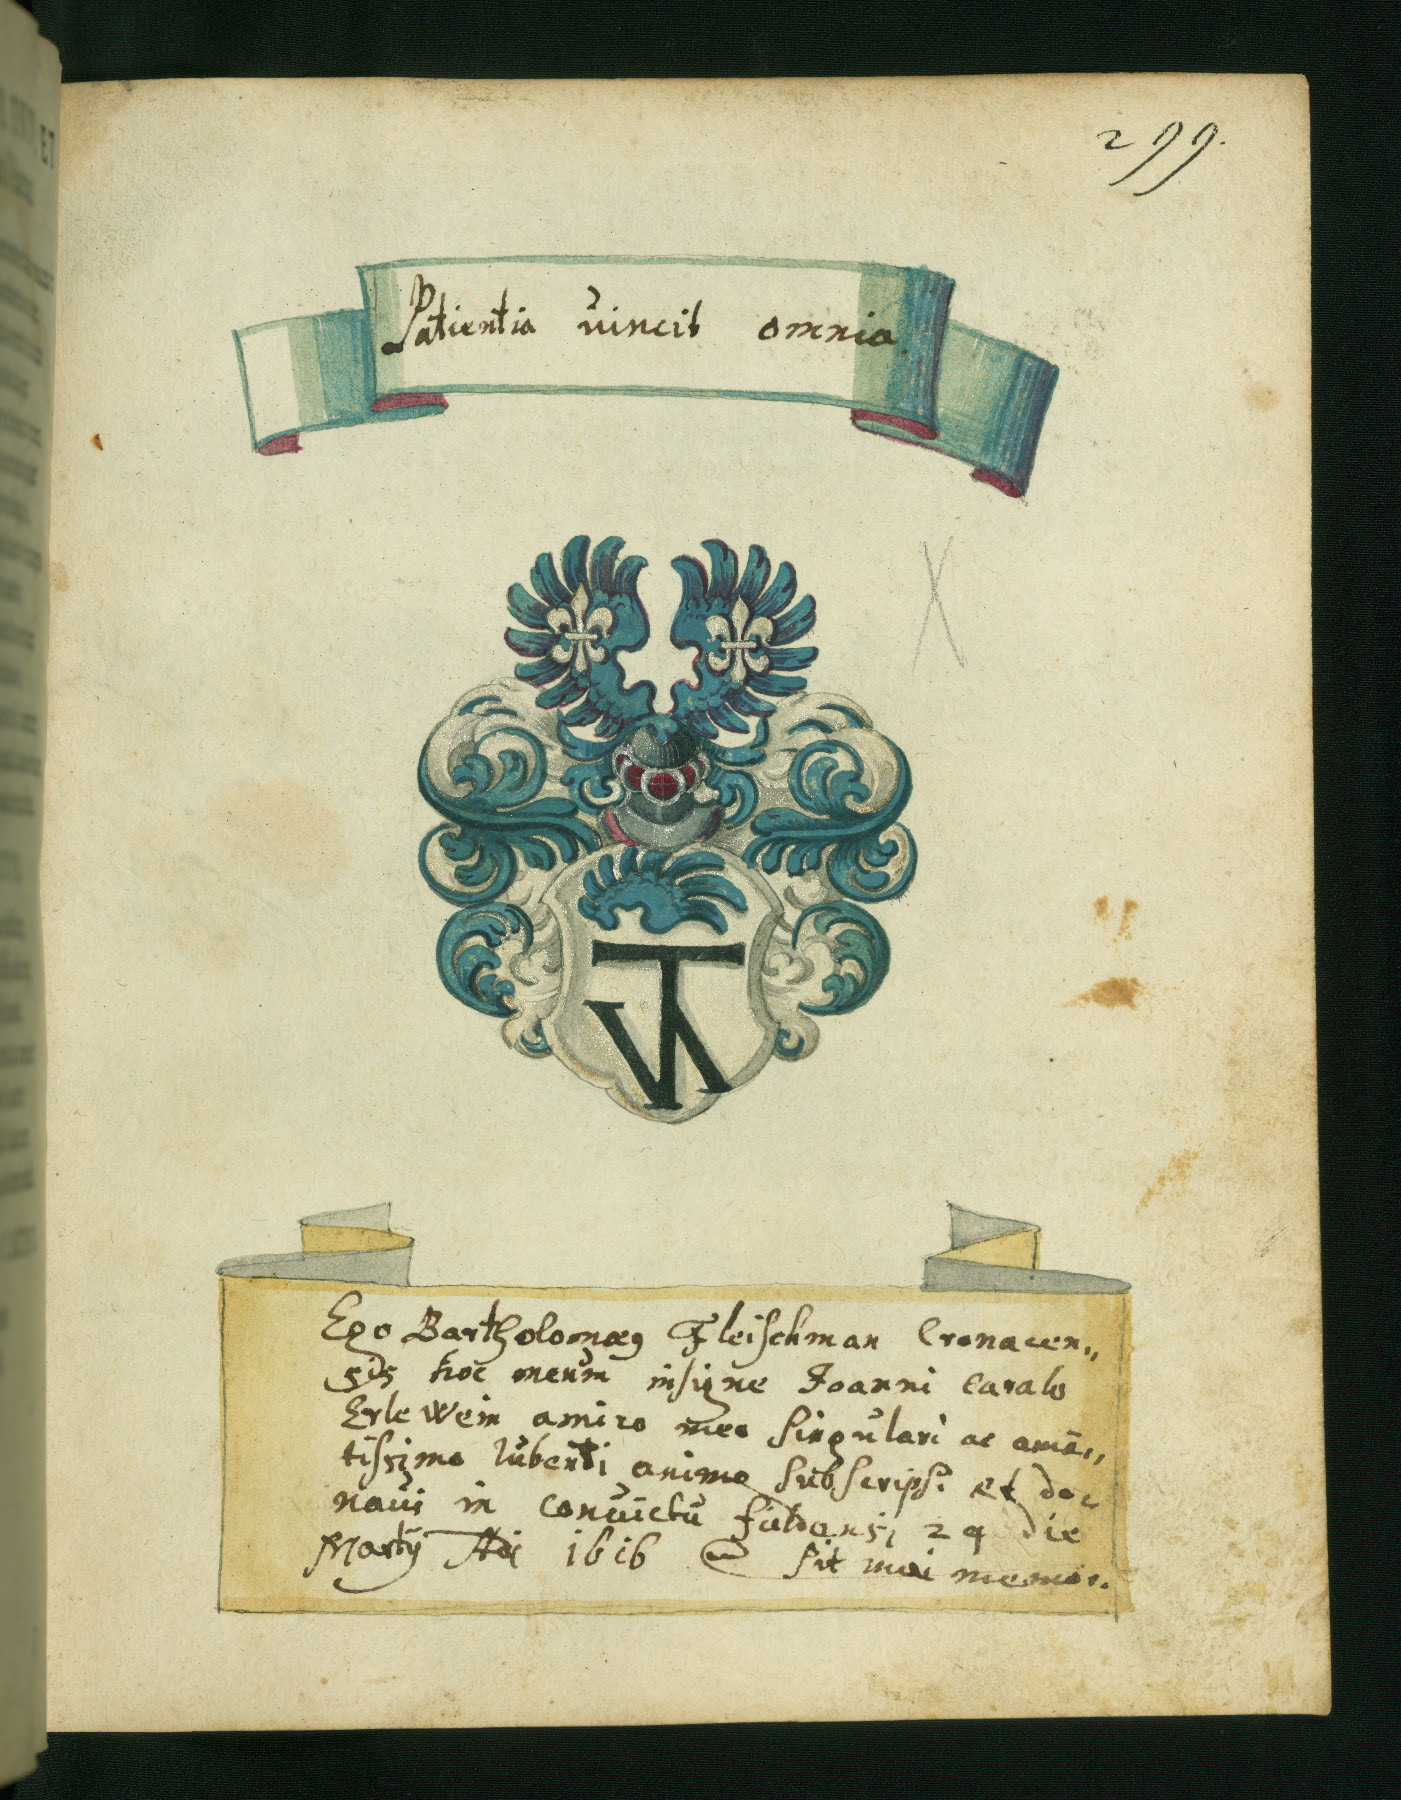 299.
Patientia vincit omnia.
Ego Bartholomæ9 Fleischman Cronacen„
sis hoc meum insigne Joanni Carolo
Erlewein amico meo singulari ac amā„
tissimo lubenti animo subscripsi et do„
navi in convictu fuldensi 29 die
Martÿ Aõi 1616 sit mei memor.